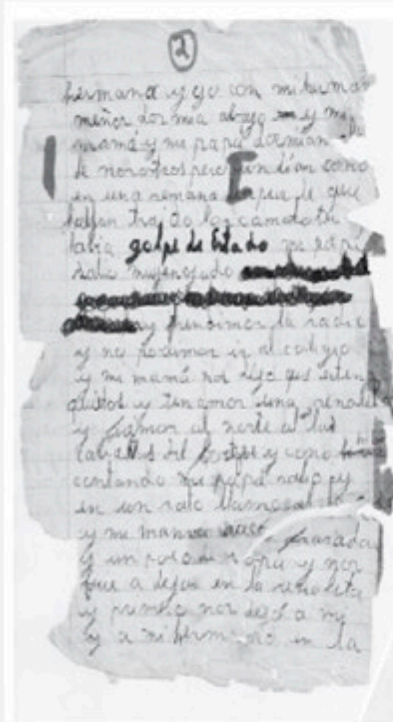 2
hermana y yo con mi herma
menor dormia abajo y mi
mamá y mi papá dormian
de nosotros pero un dia como
en una semana de que
habian traido los camo
habia golpe de Estado mi papá
salio muy enojado
y prendimos la radio
y no podiamos ir al colegio
y mi mamá nos dijo que esten
quietos y teniamos una renoleta
y ibamos al norte a las
del y como
contando mi papá salio y
en un rato llamo
y mi mamá saco frazadas
y un poco de ropa y nos
fue a dejar en la renoleta
y primero nos dejó a mi
y a mi hermano en la